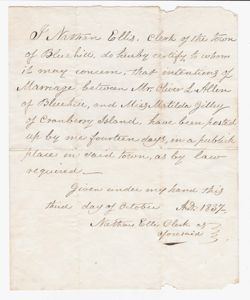 I Nathan Ells, Clerk of the town
of Bluehill, do hereby certify to whom
it may concern, that intentions of
Marriage between Mr. Oliver L. Allen
of Bluehill, and Miss Matilda Gilley
of Cranberry Island, have been posted
up by me fourteen days, in a public
place in said town, as by Law
required—
Given under my hand this
third day of October A.D. 1837.
Nathan Ells, Clerk as
aforesaid